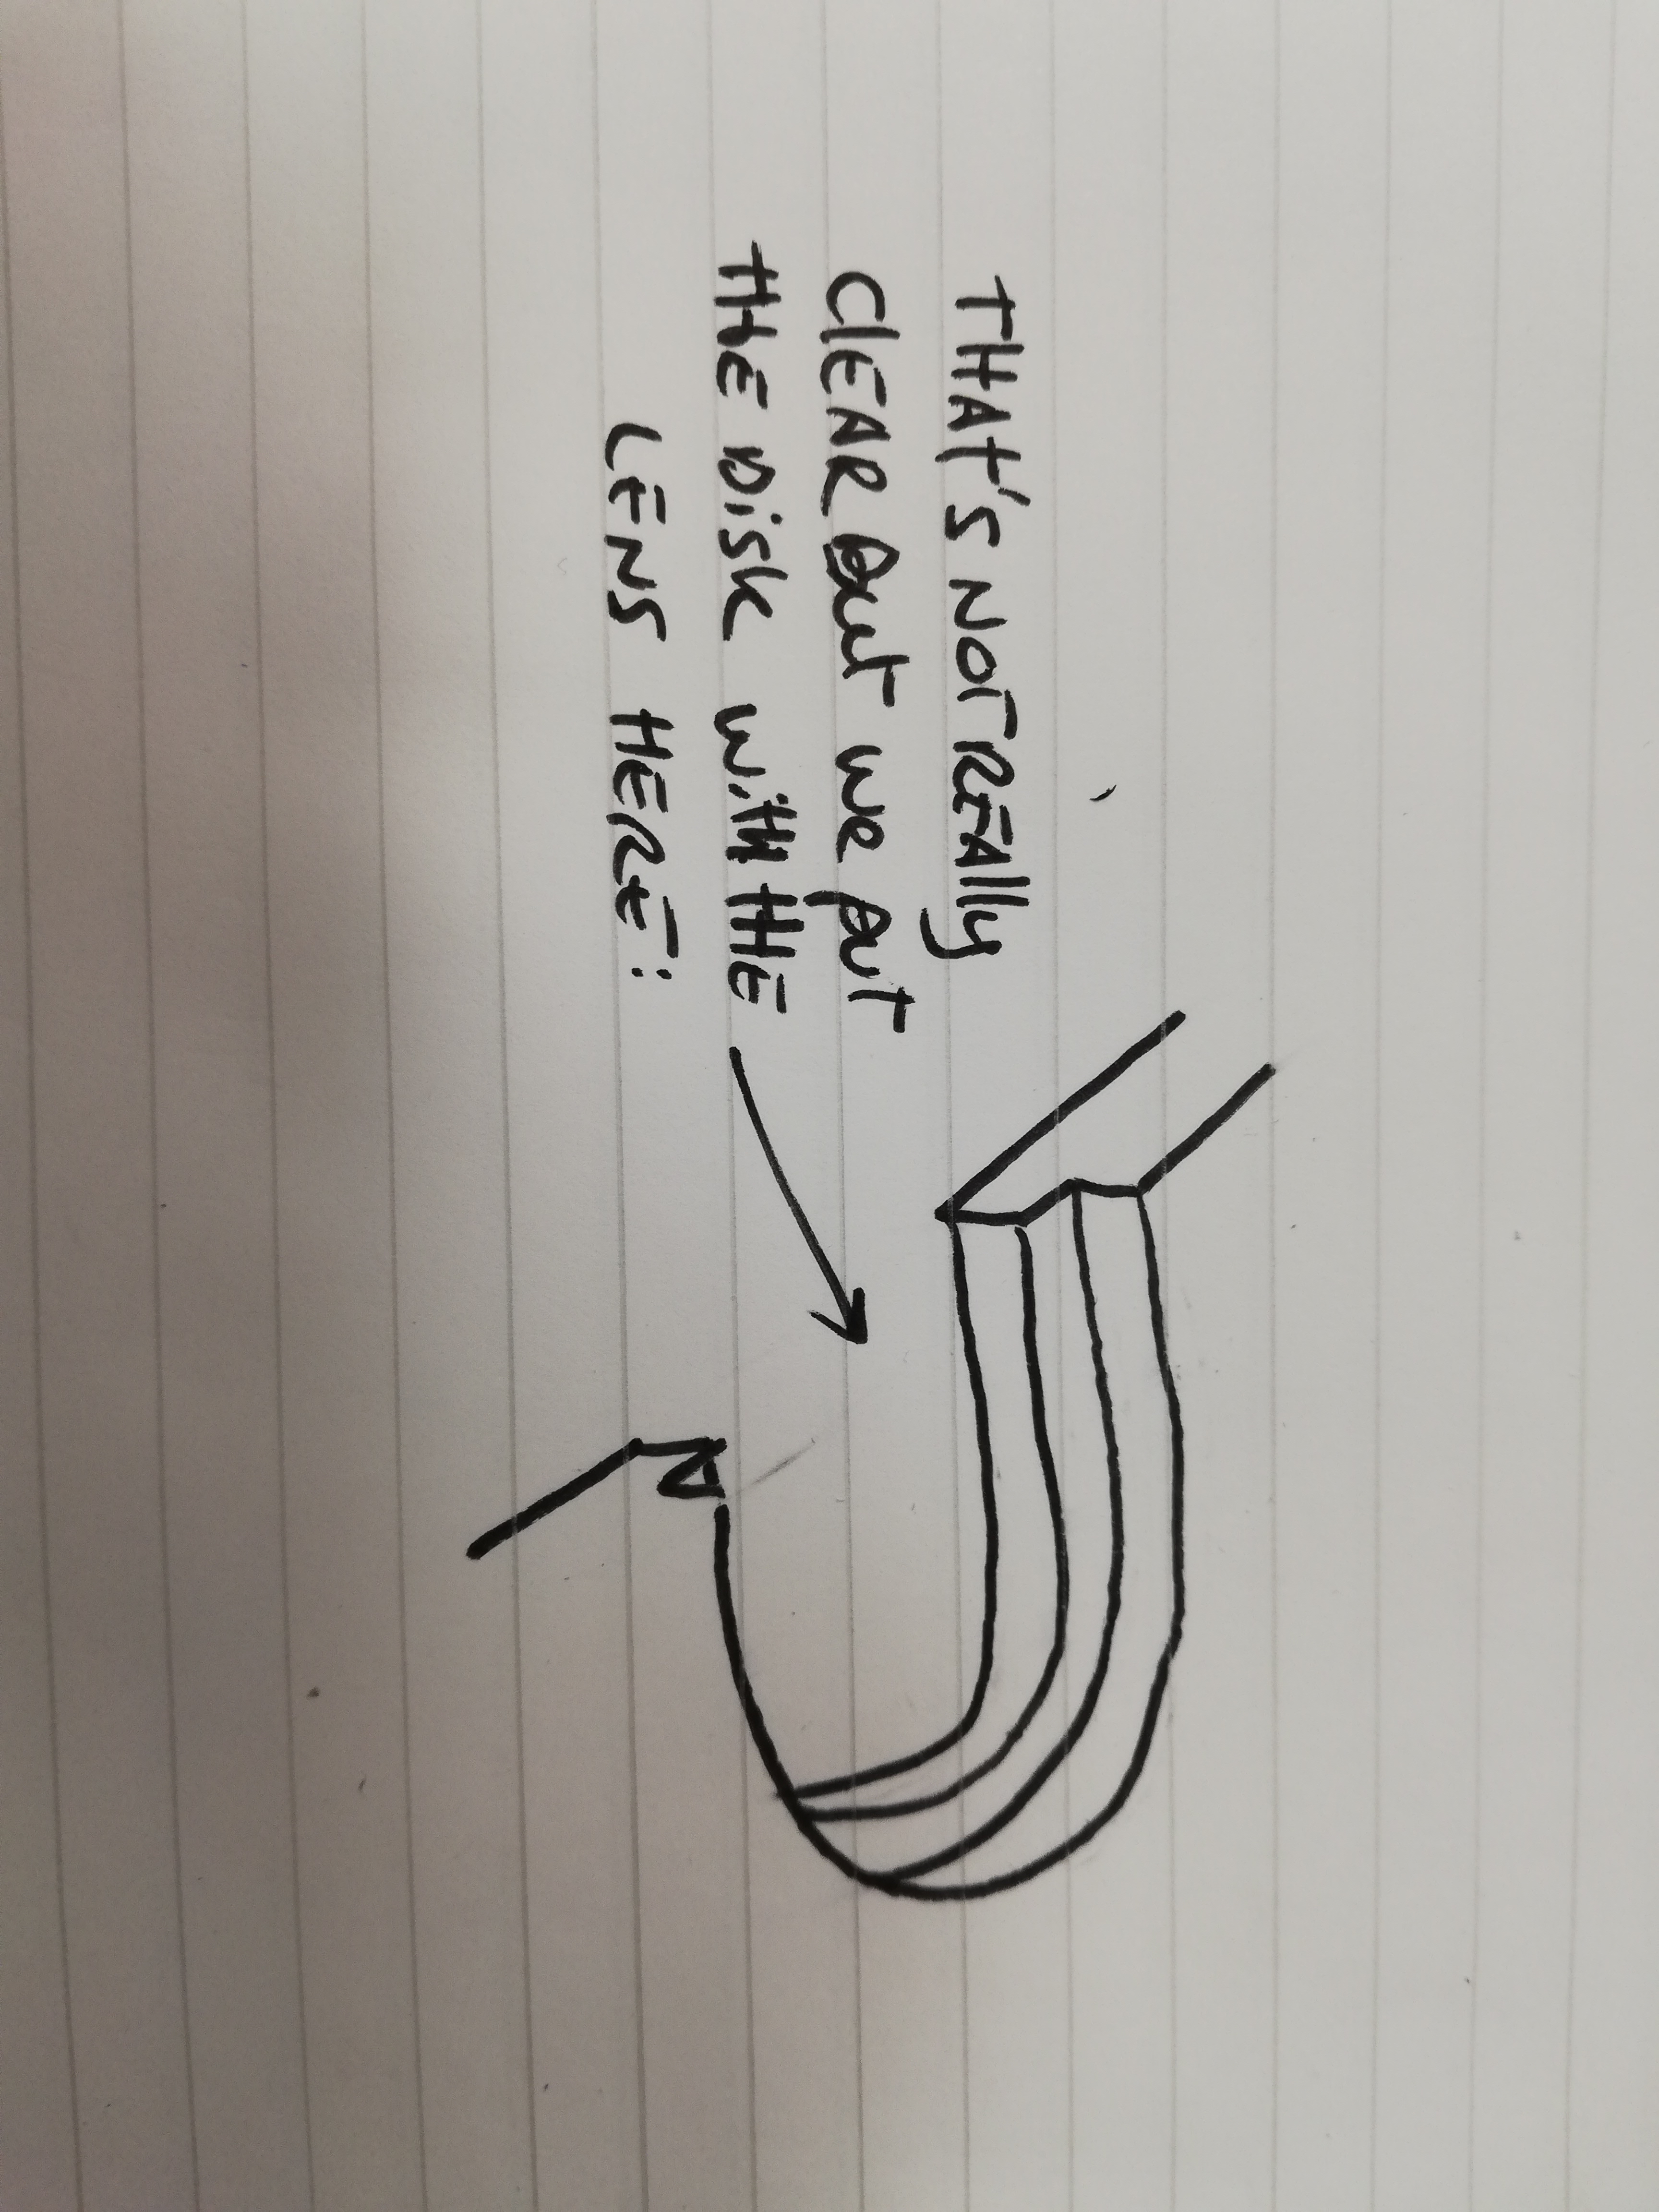 THAT'S NOT REALLY
CLEAR but we put
tHE DiSk witH tHE
LENS HERE: